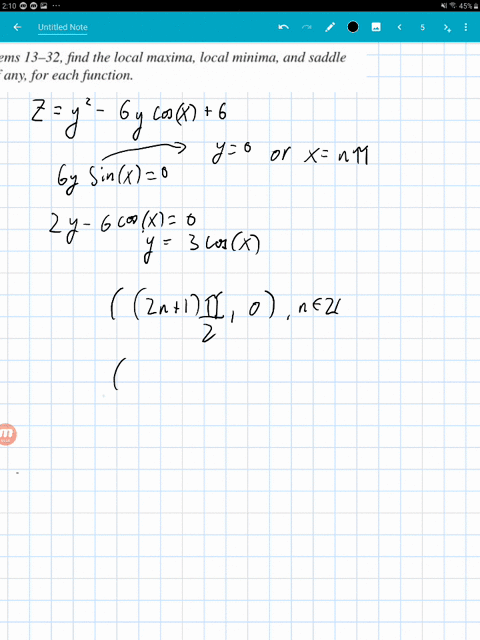 2:10 45%
Untitled Note 5
ems 13–32, find the local maxima, local minima, and saddle
f any, for each function.
Z = y² − 6y cos(x) + 6
y = 0 or x = nπ
6y sin(x) = 0
2y − 6 cos(x) = 0
y = 3 cos(x)
((2n+1)π/2, 0), n∈ℤ
(